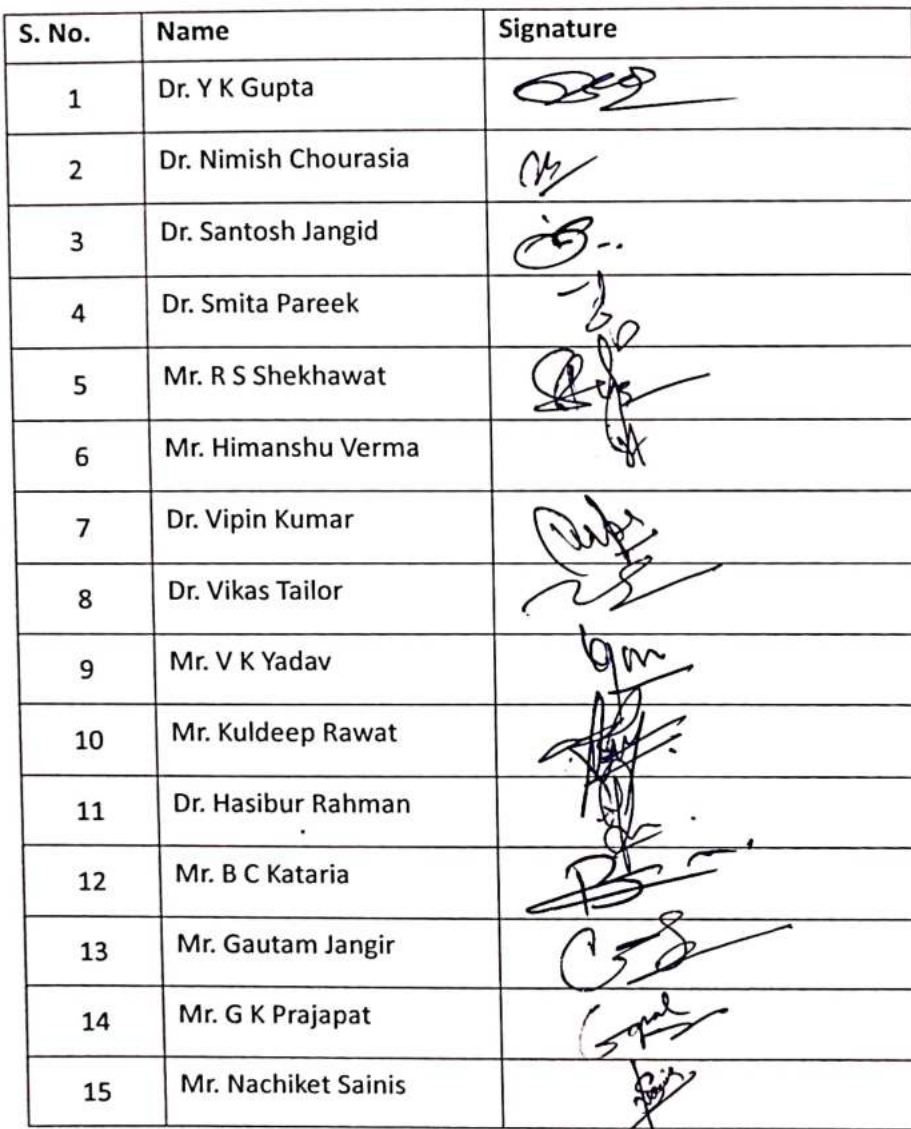 S. No. Name Signature
1 Dr. Y K Gupta
2 Dr. Nimish Chourasia
3 Dr. Santosh Jangid
4 Dr. Smita Pareek
5 Mr. R S Shekhawat
6 Mr. Himanshu Verma
7 Dr. Vipin Kumar
8 Dr. Vikas Tailor
9 Mr. V K Yadav
10 Mr. Kuldeep Rawat
11 Dr. Hasibur Rahman
12 Mr. B C Kataria
13 Mr. Gautam Jangir
14 Mr. G K Prajapat
15 Mr. Nachiket Sainis